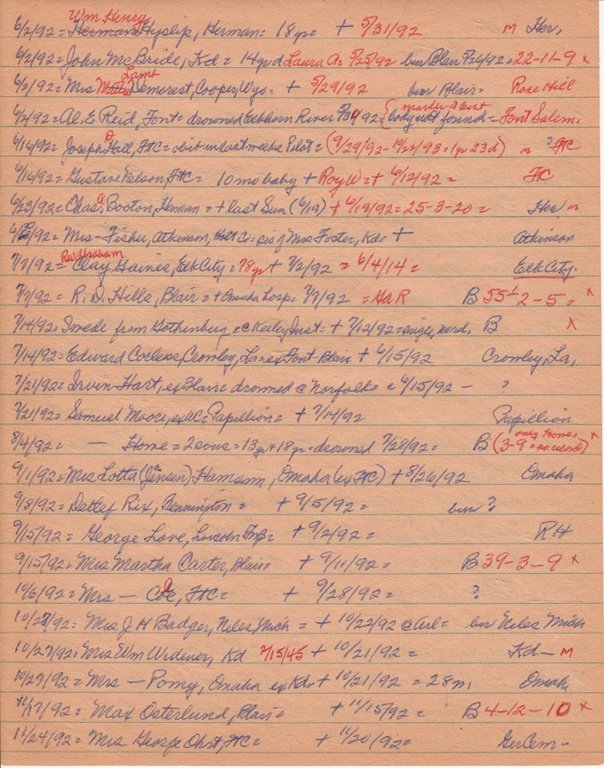 Wm Henry
6/2/92 = Herman Hyslip, Herman = 18 yr = + 5/31/92 M Her,
6/2/92 = John McBride, Kd = 14 yr d Laura A = 5/25/92 bur Blair 5/26/92 = 22-11-9 x
Lamb
6/2/92 = Mrs Demorest, Cooper, Wyo = + 5/29/92 bur Blair = Rose Hill
marker at burt
6/2/92 = Al. E Reid, Font = drowned Elkhorn River 5/30/92 {body not found = Font Salem
6/14/92 = Joseph P Hall, FtC = obit in last weeks Pilot = (9/29/92 - 10/22/93 = 1 yr 23d) m ? FC
6/16/92 = Gustave Nelson, FtC = 10 mo baby + Roy W = + 6/12/92 = FC
6/23/92 = Chas A Boston, Herman = + last Sun (6/19) + 6/19/92 = 25-3-20 = Her m
6/ /92 = Mrs - Fisher, Atkinson, Holt Co = sis of Mrs Foster, Kd = + Atkinson
Rev Abraham
7/7/92 = Clay Gaines, Elk City = 78 yr + 7/2/92 = 6/4/14 = Elk City.
7/7/92 = R. D. Hills, Blair = + Omaha hosp = 7/7/92 = GAR B 55-2-5 = x
7/14/92 = Swede from Gothenburg = @ Keeley Inst = + 7/12/92 = B x
7/14/92 = Edward Coclexe, Crowley, La = ex Font Blair + 6/15/92 Crowley, La,
7/21/92 = Irvin Hart, ex Blair = drowned @ Norfolk = @ 6/15/92 - ?
7/21/92 = Samuel Moore, ex WC = Papillion = + 7/14/92 Papillion
8/4/92 = - Horne = 2 sons = 13 yr + 18 yr = drowned 7/28/92 = B (3-9 = no records) x
only Hornes
9/1/92 = Mrs Lotta (Jensen) Hamann, Omaha (ex FtC) + 8/26/92 Omaha
9/8/92 = Detlef Rix, Bennington = + 9/5/92 = bur ?
9/15/92 = George Love, Lincoln Twp = + 9/2/92 = RH
9/15/92 = Mrs Martha Carter, Blair = + 9/11/92 = B 39-3-9 x
10/6/92 = Mrs - Coe, FtC = + 9/28/92 = ?
10/27/92 = Mrs J H Badger, Niles, Mich = + 10/22/92 @ Arl = bur Niles Mich
10/27/92 = Mrs Wm Widener, Kd 2/15/45 + 10/21/92 = Kd - M
10/27/92 = Mrs - Pomy, Omaha ex Kd = + 10/21/92 = 28 m, Omaha
11/17/92 = Max Osterlund, Blair = + 11/15/92 = B 4-12-10 x
11/24/92 = Mrs George Ohst, FtC = + 11/20/92 = Ger Cem -